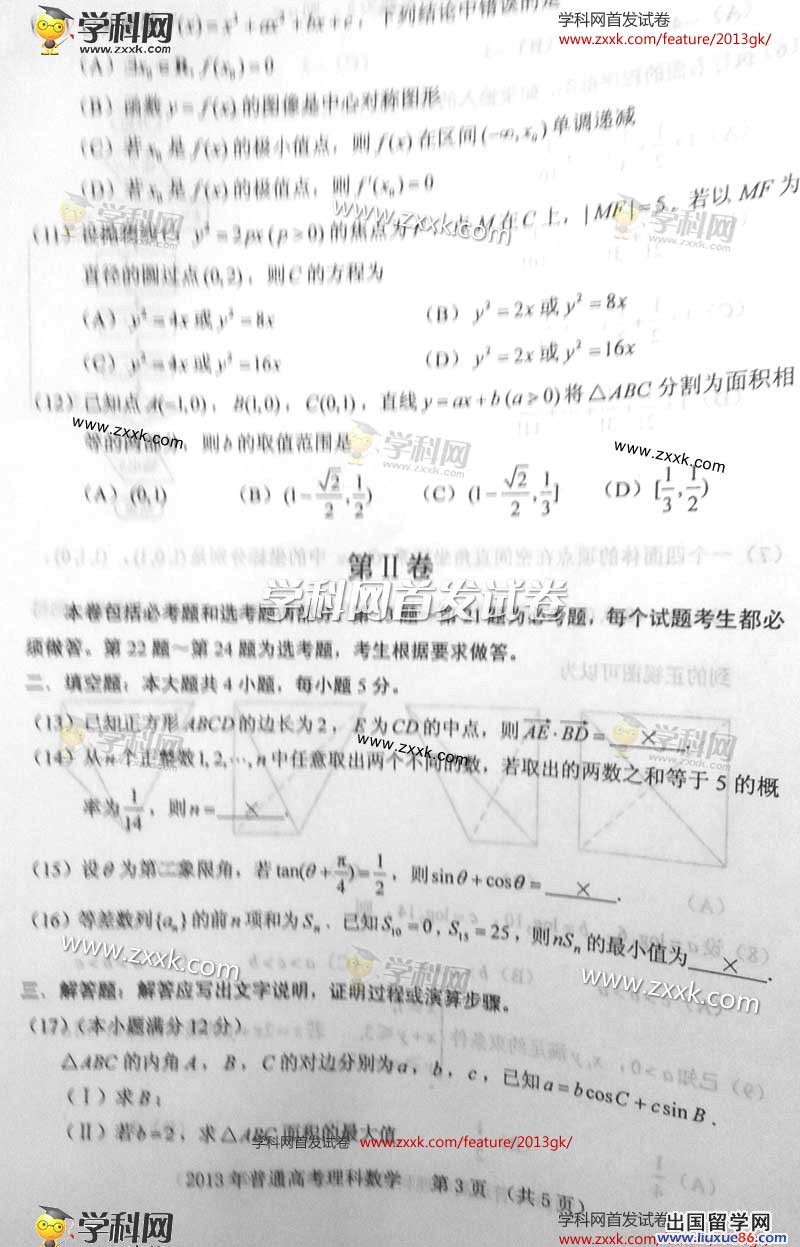 学科网 www.zxxk.com
学科网首发试卷
www.zxxk.com/feature/2013gk/
f(x)=x³+ax²+bx+c，下列结论中错误的是
(A) ∃x₀∈R, f(x₀)=0
(B) 函数 y=f(x) 的图像是中心对称图形
(C) 若 x₀ 是 f(x) 的极小值点，则 f(x) 在区间 (-∞,x₀) 单调递减
(D) 若 x₀ 是 f(x) 的极值点，则 f'(x₀)=0
学科网 zxxk.com
www.zxxk.com
学科网 zxxk.com
(11) 设抛物线 C：y²=2px(p>0) 的焦点为 点 M 在 C 上，|MF|=5．若以 MF 为
直径的圆过点 (0,2)，则 C 的方程为
(A) y²=4x 或 y²=8x (B) y²=2x 或 y²=8x
(C) y²=4x 或 y²=16x (D) y²=2x 或 y²=16x
(12) 已知点 A(-1,0)，B(1,0)，C(0,1)，直线 y=ax+b(a>0) 将 △ABC 分割为面积相
等的两部分，则 b 的取值范围是
www.zxxk.com
学科网 zxxk.com
www.zxxk.com
(A) (0,1) (B) (1-√2/2, 1/2) (C) (1-√2/2, 1/3] (D) [1/3, 1/2)
第 II 卷
学科网首发试卷
本卷包括必考题和选考题两部分。 题为必考题，每个试题考生都必
须做答。第 22 题～第 24 题为选考题，考生根据要求做答。
二、填空题：本大题共 4 小题，每小题 5 分。
(13) 已知正方形 ABCD 的边长为 2，E 为 CD 的中点，则 AE·BD= × .
学科网 zxxk.com
www.zxxk.com
学科网 zxxk.com
(14) 从 n 个正整数 1,2,…,n 中任意取出两个不同的数，若取出的两数之和等于 5 的概
率为 1/14，则 n= × .
(15) 设 θ 为第二象限角，若 tan(θ+π/4)=1/2，则 sinθ+cosθ= × .
(16) 等差数列 {aₙ} 的前 n 项和为 Sₙ．已知 S₁₀=0, S₁₅=25，则 nSₙ 的最小值为 × .
www.zxxk.com
学科网 zxxk.com
www.zxxk.com
三、解答题：解答应写出文字说明，证明过程或演算步骤。
(17) (本小题满分 12 分)
△ABC 的内角 A，B，C 的对边分别为 a，b，c，已知 a=bcosC+csinB．
(I) 求 B；
(II) 若 b=2，求 △ABC 面积的最大值
学科网首发试卷 www.zxxk.com/feature/2013gk/
2013 年普通高考理科数学 第 3 页 (共 5 页)
学科网 www.zxxk.com
学科网首发试卷
www.zxxk.com/feature/2013gk/
出国留学网
www.liuxue86.com